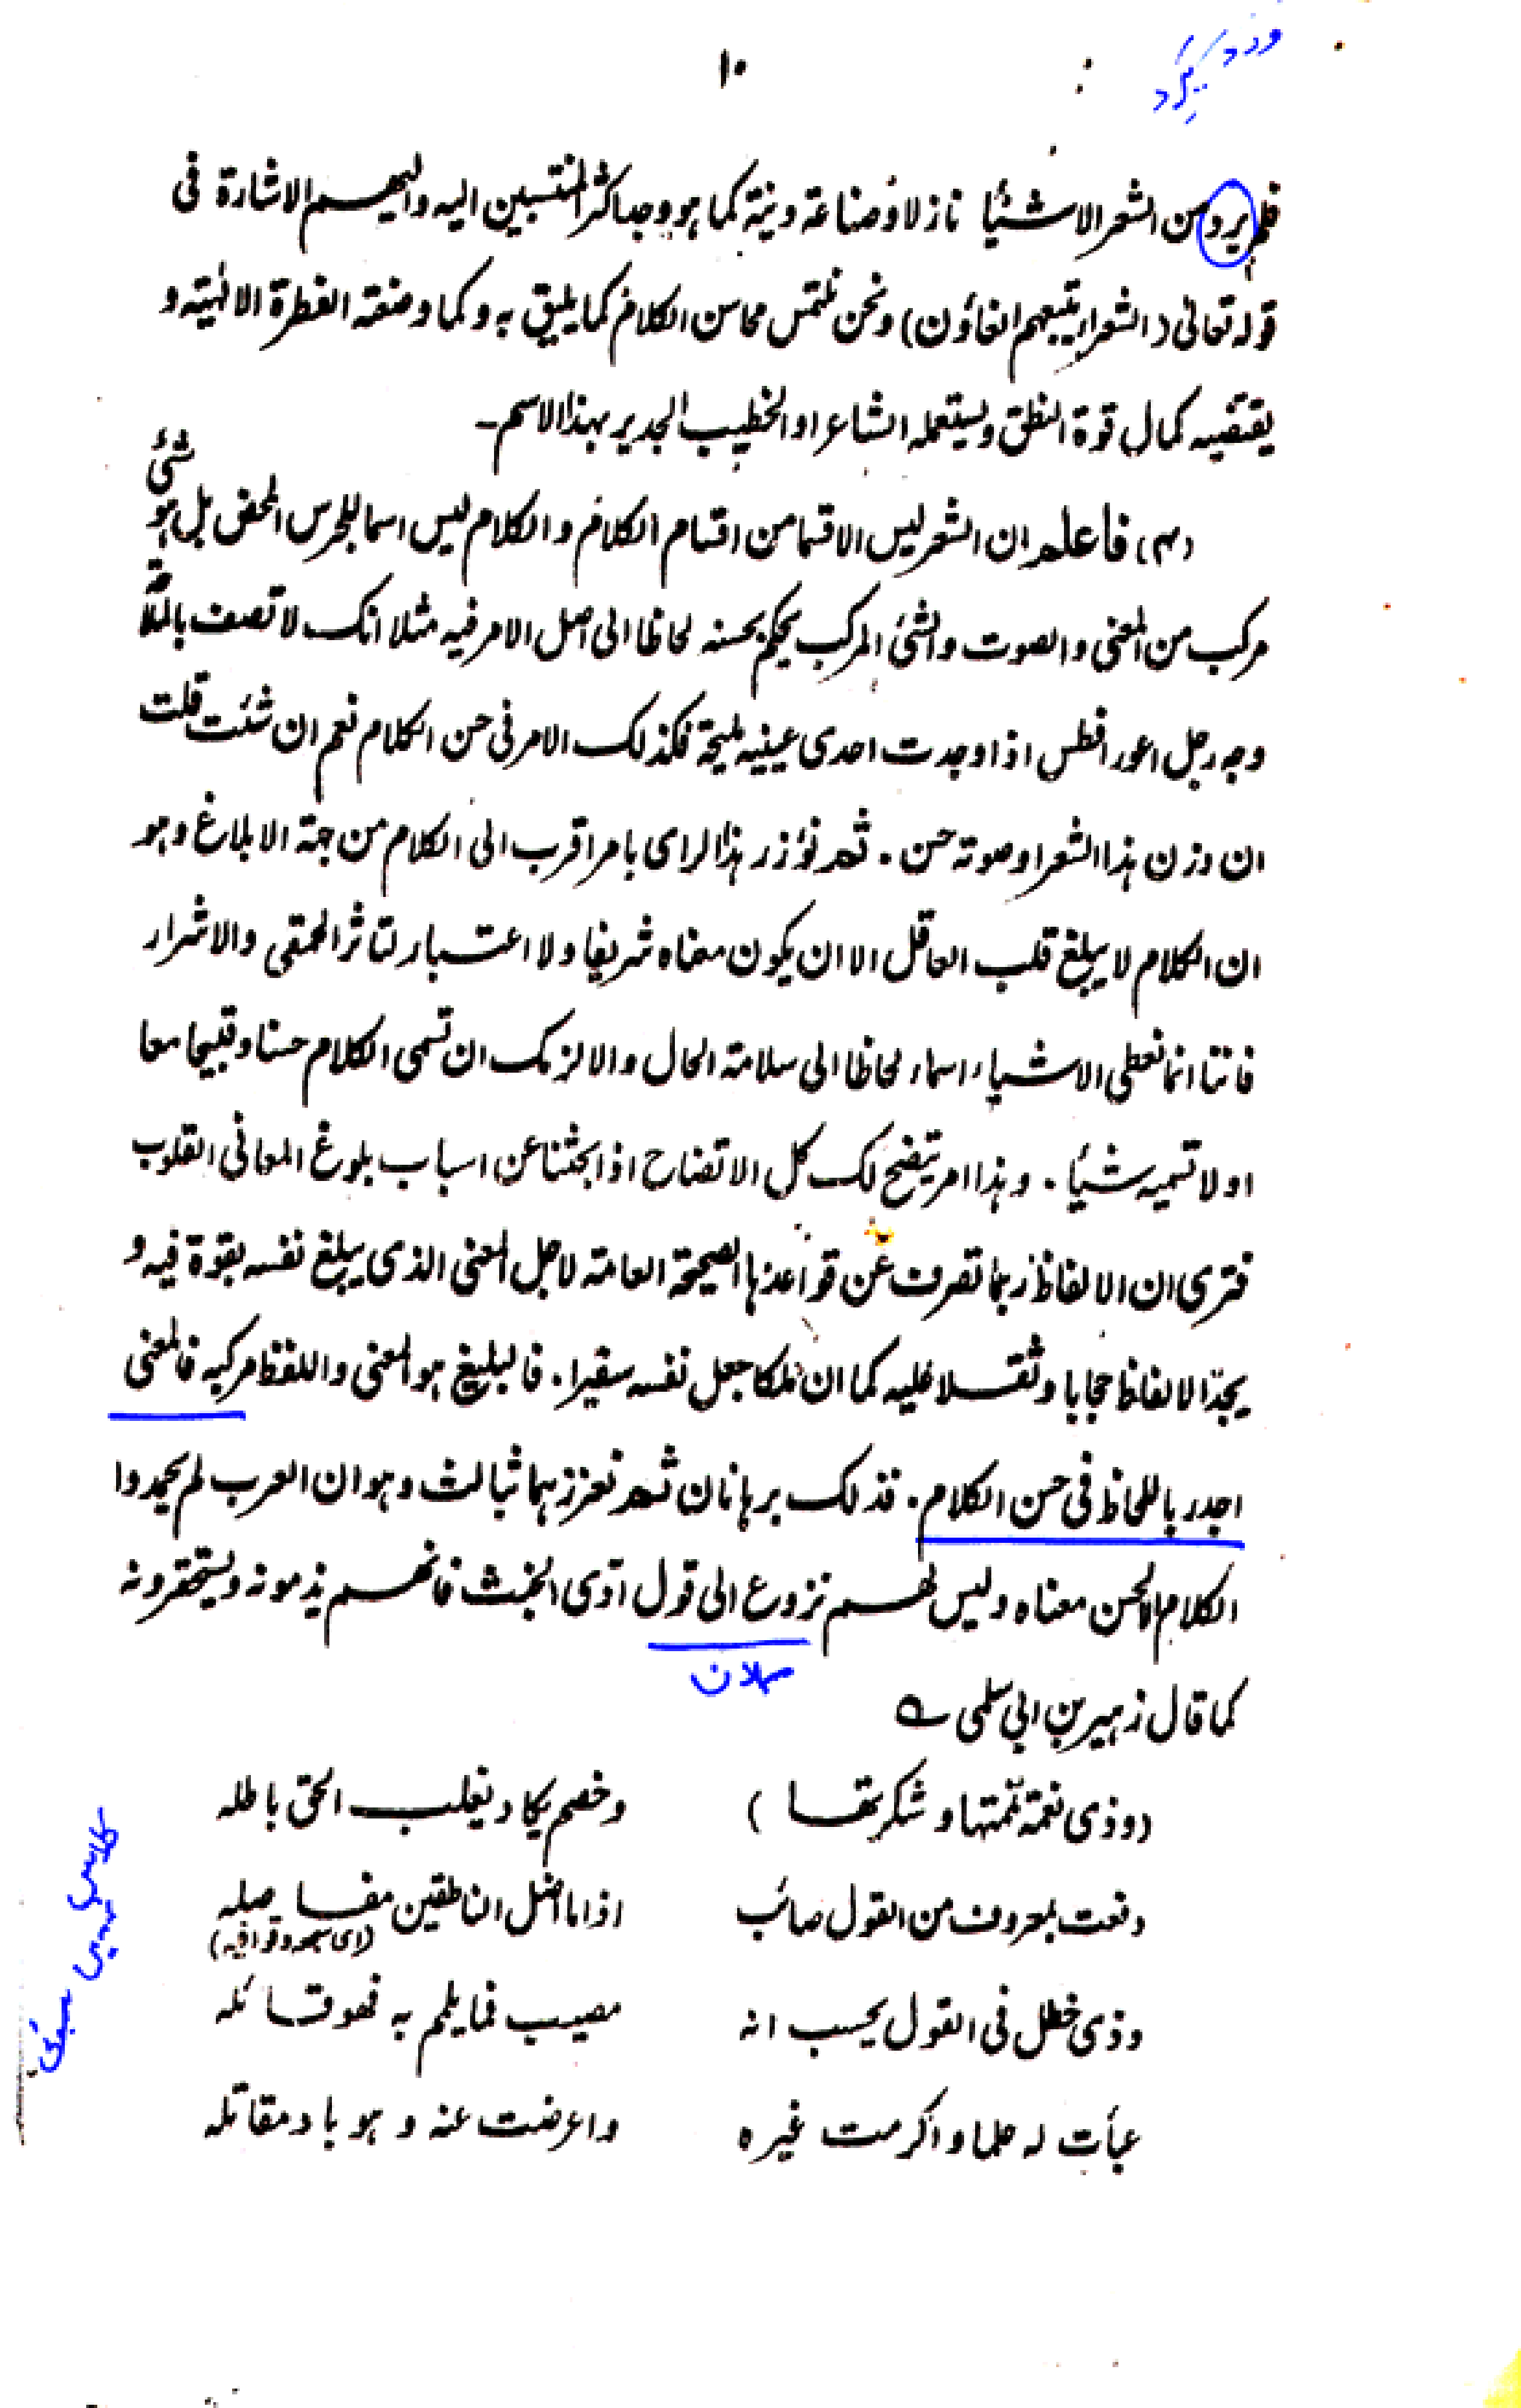 ١٠
فلم يرد من الشعر الا شيئا نازلا وصناعة دنية كما هو وجد اكثر المنتسبين اليه واليهم الاشارة فى
قوله تعالى (الشعراء يتبعهم الغاؤن) ونحن نلتمس محاسن الكلام كما يليق به وكما وضعته الفطرة الالهية و
يقتضيه كمال قوة النطق ويستعمله الشاعر او الخطيب الجدير بهذا الاسم۔
(٣) فاعلم ان الشعر ليس الا قسما من اقسام الكلام والكلام ليس اسما للجرس المحض بل هو شئ
مركب من المعنى والصوت والشئ المركب يحكم بحسنه لحاظا الى اصل الامر فيه مثلا انك لا تصف بالملاحة
وجه رجل اعور افطس اذا وجدت احدى عينيه مليحة فكذلك الامر فى حسن الكلام نعم ان شئت قلت
ان وزن هذا الشعر او صوته حسن . ثم نؤزر هذا الراى بامر اقرب الى الكلام من جهة الابلاغ وهو
ان الكلام لا يبلغ قلب العاقل الا ان يكون معناه شريفا ولا اعتبار لتاثر الحمقى والاشرار
فاننا انما نعطى الاشياء اسماء لحاظا الى سلامة الحال والا لزمك ان تسمى الكلام حسنا وقبيحا معا
او لا تسميه شيئا . وهذا امر يتضح لك كل الاتضاح اذا بحثنا عن اسباب بلوغ المعانى القلوب
فترى ان الالفاظ ربما تصرف عن قواعدها الصيحة العامة لاجل المعنى الذى يبلغ نفسه بقوة فيه و
يجد الالفاظ حجابا وثقلا عليه كما ان ملكا جعل نفسه سفيرا . فالبليغ هو المعنى واللفظ مركبه فالمعنى
اجدر باللحاظ فى حسن الكلام . فذلك برهانان ثم نعززهما بثالث وهو ان العرب لم يحمدوا
الكلام الا لحسن معناه وليس لهم نزوع الى قول ادى الخبث فانهم يذمونه ويستحقرونه
كما قال زهير بن ابى سلمى ے
(وذى نعمة تممتها وشكرتها) وخصم يكاد يغلب الحق باطله
دفعت بمعروف من القول صائب اذا ما اضل الناطقين مفاصله
وذى خطل فى القول يحسب انه مصيب فما يلمم به فهو قائله
عبأت له حلما واكرمت غيره واعرضت عنه وهو باد مقاتله